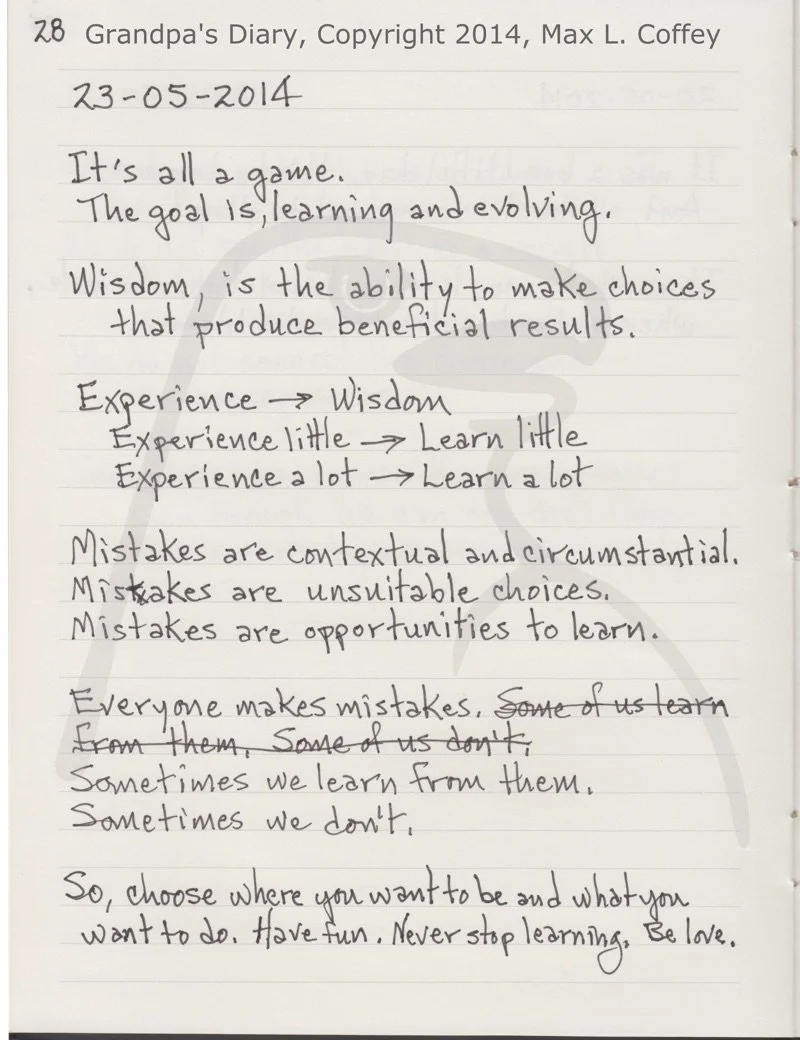 28 Grandpa's Diary, Copyright 2014, Max L. Coffey
23-05-2014
It's all a game.
The goal is, learning and evolving.
Wisdom, is the ability to make choices
that produce beneficial results.
Experience → Wisdom
Experience little → Learn little
Experience a lot → Learn a lot
Mistakes are contextual and circumstantial.
Mistakes are unsuitable choices.
Mistakes are opportunities to learn.
Everyone makes mistakes. Some of us learn
from them. Some of us don't.
Sometimes we learn from them.
Sometimes we don't.
So, choose where you want to be and what you
want to do. Have fun. Never stop learning. Be love.